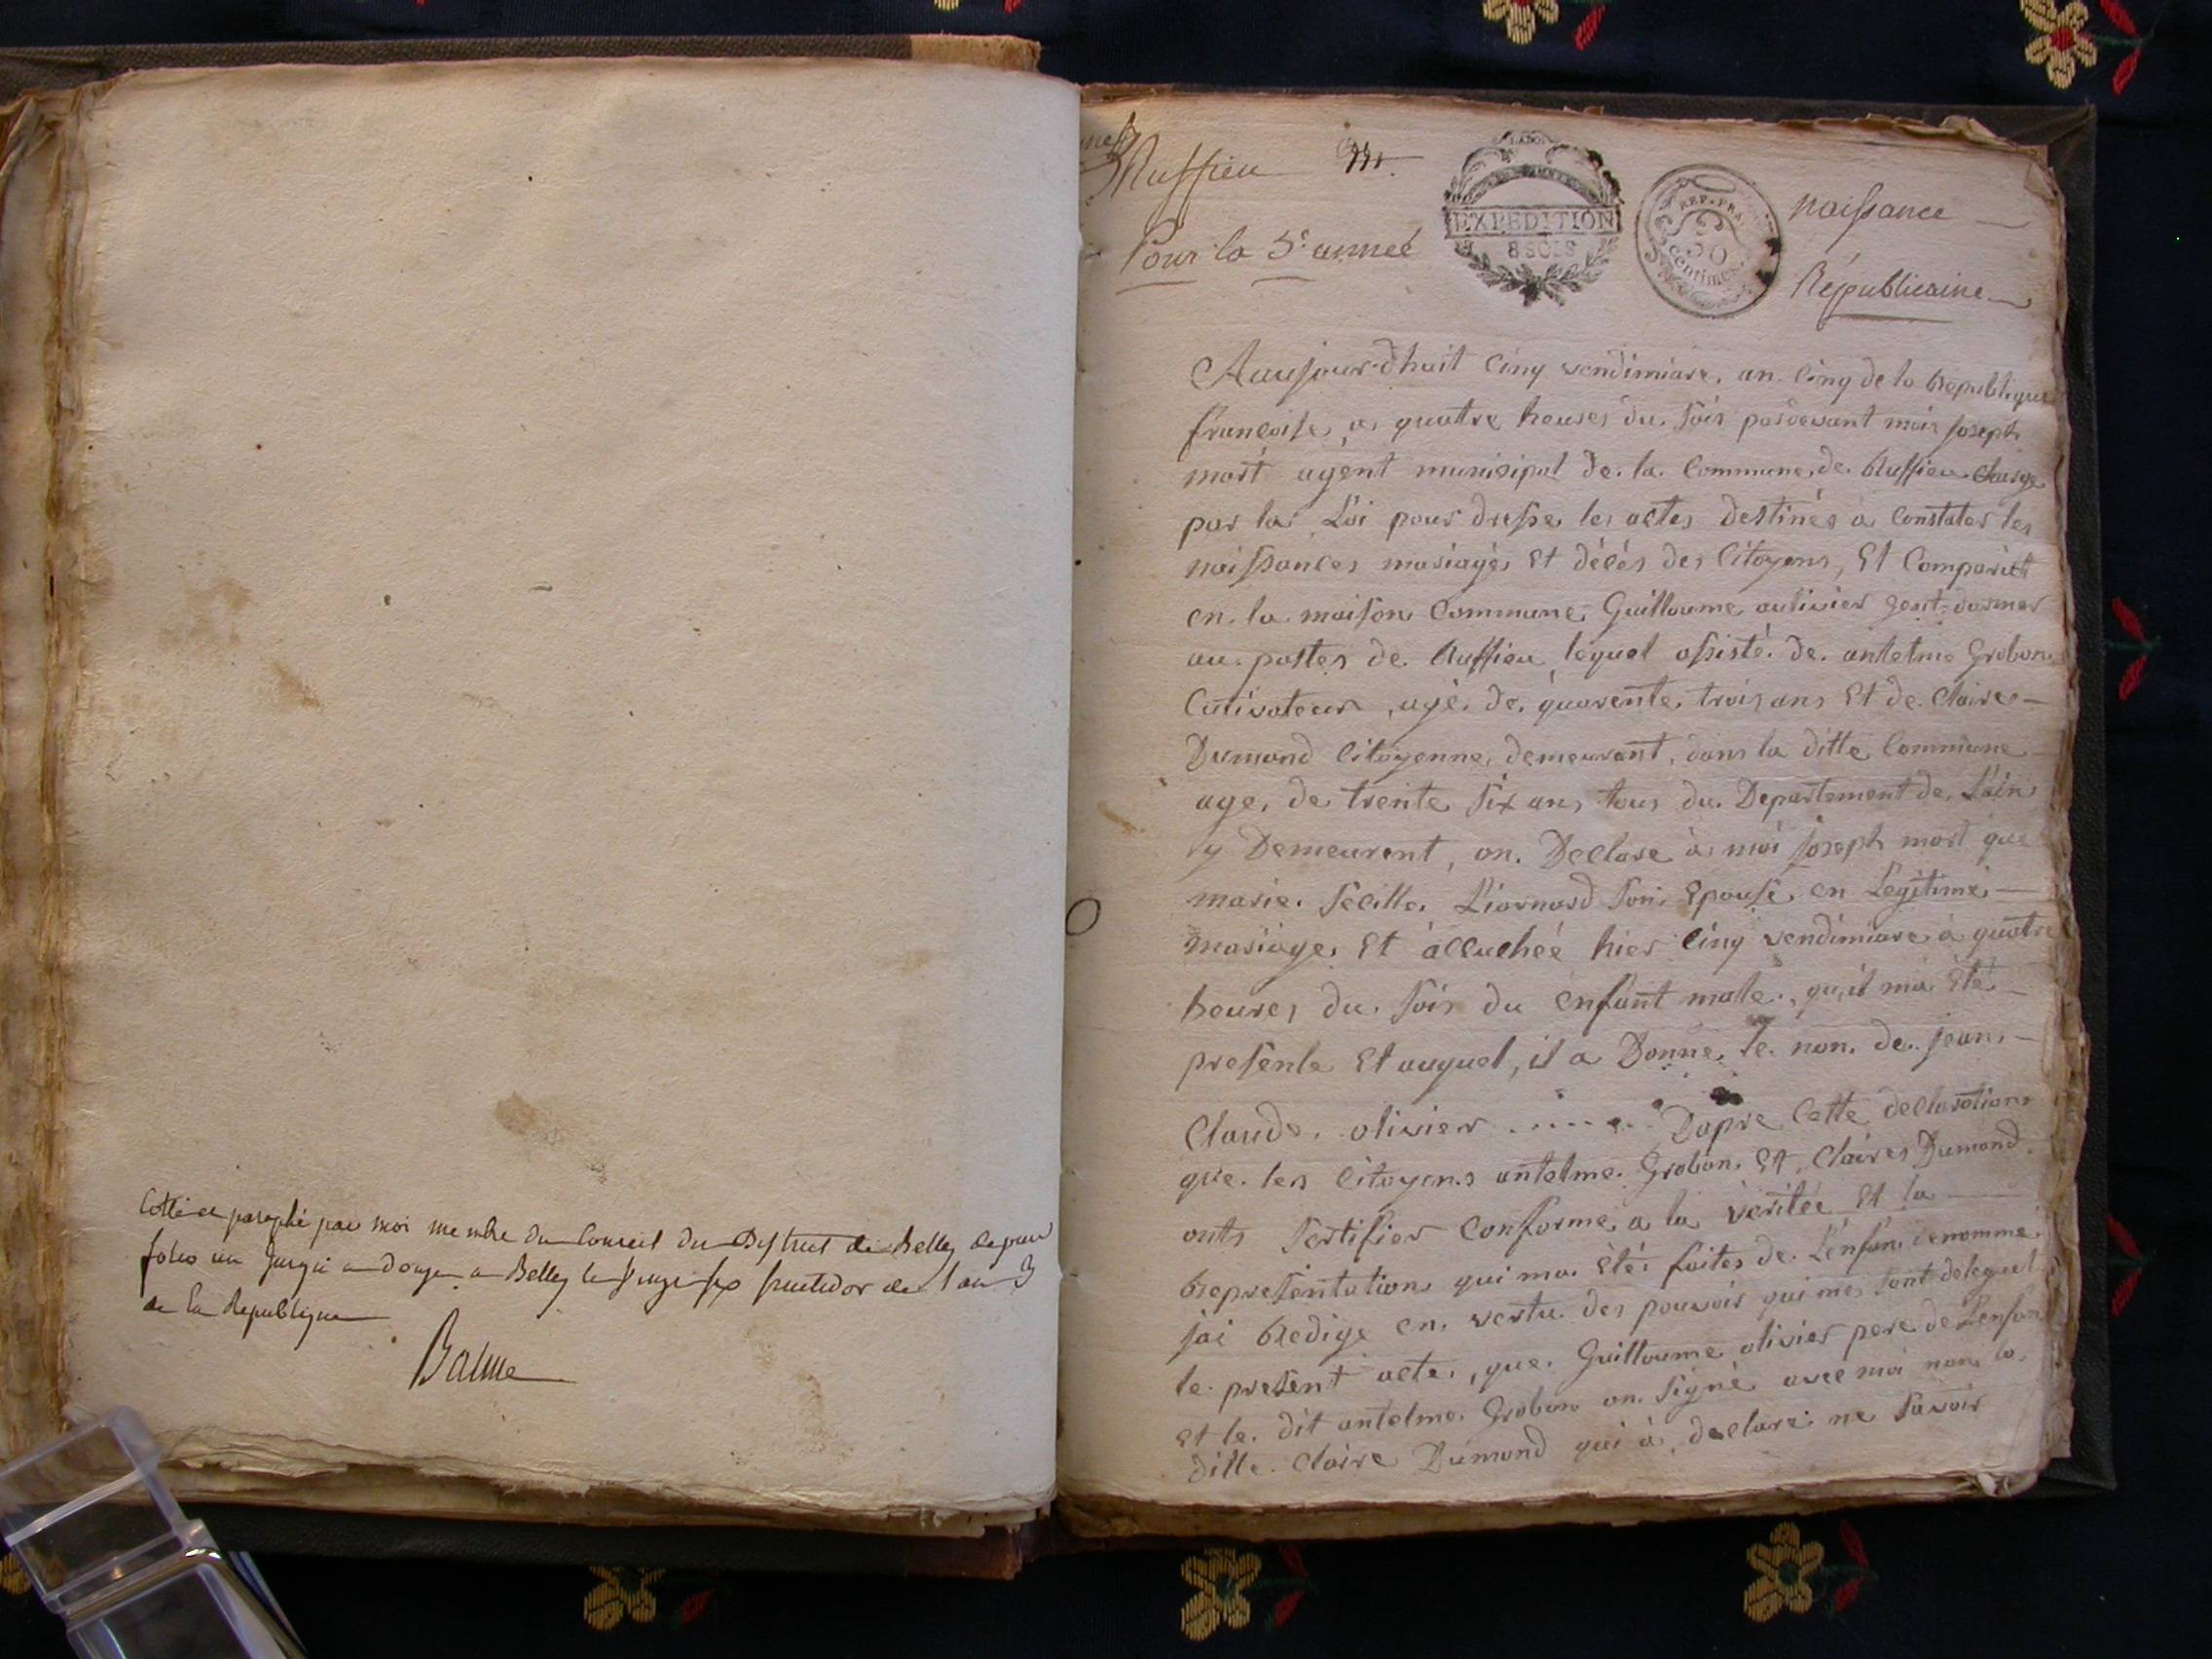 Cotté et paraphé par moi membre du Conseil du District de Belley depuis
folio un jusqu'a a Belley le fructidor de l'an 3
de la Republique
Balme
Ruffieu
EXPEDITION
8 SOLS
REP. FRA.
50
centimes
naissance
Pour la 5e année
Républicaine
Aaujourdhuit Cinq vendimiare, an Cinq de la Republique
francoise, a quatre heures du soir pardevant moi joseph
mort agent municipal de la Commune de Ruffieu Charge
par la Loi pour dresse les actes destinés a Constater les
naissances mariages Et décés des Citoyens, Et Comparut
en la maison Commune Guilloume aulivier
au postes de Ruffieu lequel assisté de antelme Grobon
Cutivateur, agé de quarente trois ans Et de Claire
Dumond Citoyenne demeurant, dans la ditte Commune
age, de trente six ans tous du Departement de Lain
y Demeurent, on Declare à moi joseph mort que
marie Son Epouse en Legitime
mariage Et àccuchéé hier Cinq vendimiare à quatre
heures du soir du Enfant male, qu,il ma Eté
presente Et auquel, il a Donne le non de jean
Claude olivier Dapre Cette declaration
que les Citoyens antelme Grobon Et Claires Dumond
onts Sertifier Conforme a la véritée Et la
Representation qui ma Eté faites de Lenfan denommé
jai Redige en vertu des pouvoir qui mes sont deleguel
le present acte, que Guilloume olivier pere de Lenfan
Et le dit antelme Grobon on signé avec moi non la
ditte Claire Dumond qui à declare ne savoir